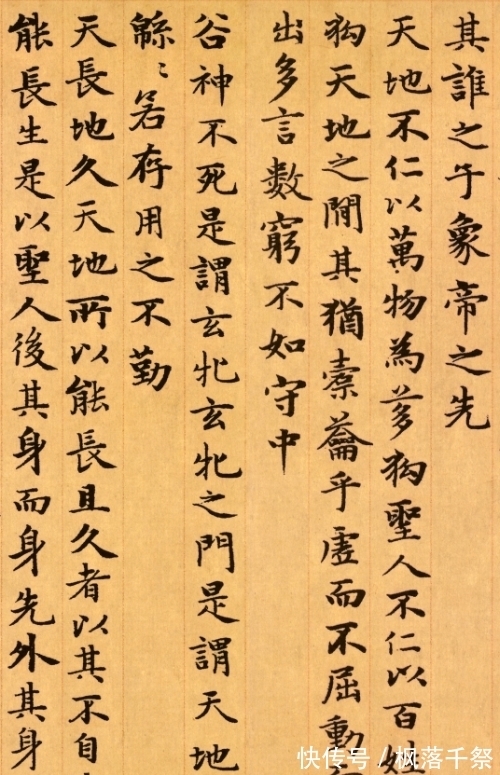 其誰之子象帝之先
天地不仁以萬物為芻狗聖人不仁以百姓
狗天地之間其猶橐籥乎虛而不屈動
出多言數窮不如守中
谷神不死是謂玄牝玄牝之門是謂天地
緜〻若存用之不勤
天長地久天地所以能長且久者以其不自
能長生是以聖人後其身而身先外其身
快传号 / 枫落千祭